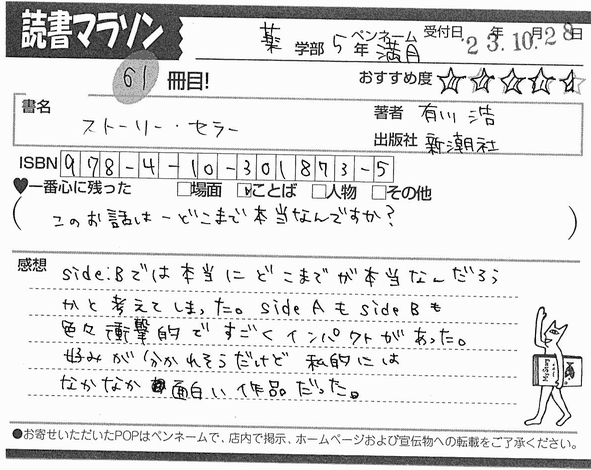 読書マラソン
薬 学部 5 年 ペンネーム 満月 受付日 '23.10.28 年 月 日
61 冊目!
おすすめ度 ☆☆☆☆☆
書名 ストーリー・セラー
著者 有川 浩
出版社 新潮社
ISBN 978-4-10-301873-5
♥一番心に残った □場面 ☑ことば □人物 □その他
(このお話は―どこまで本当なんですか?)
感想
side:Bでは本当にどこまでが本当なんだろう
かと考えてしまった。side Aもside Bも
色々衝撃的ですごくインパクトがあった。
好みが分かれそうだけど 私的には
なかなか面白い作品だった。
●お寄せいただいたPOPはペンネームで、店内で掲示、ホームページおよび宣伝物への転載をご了承ください。